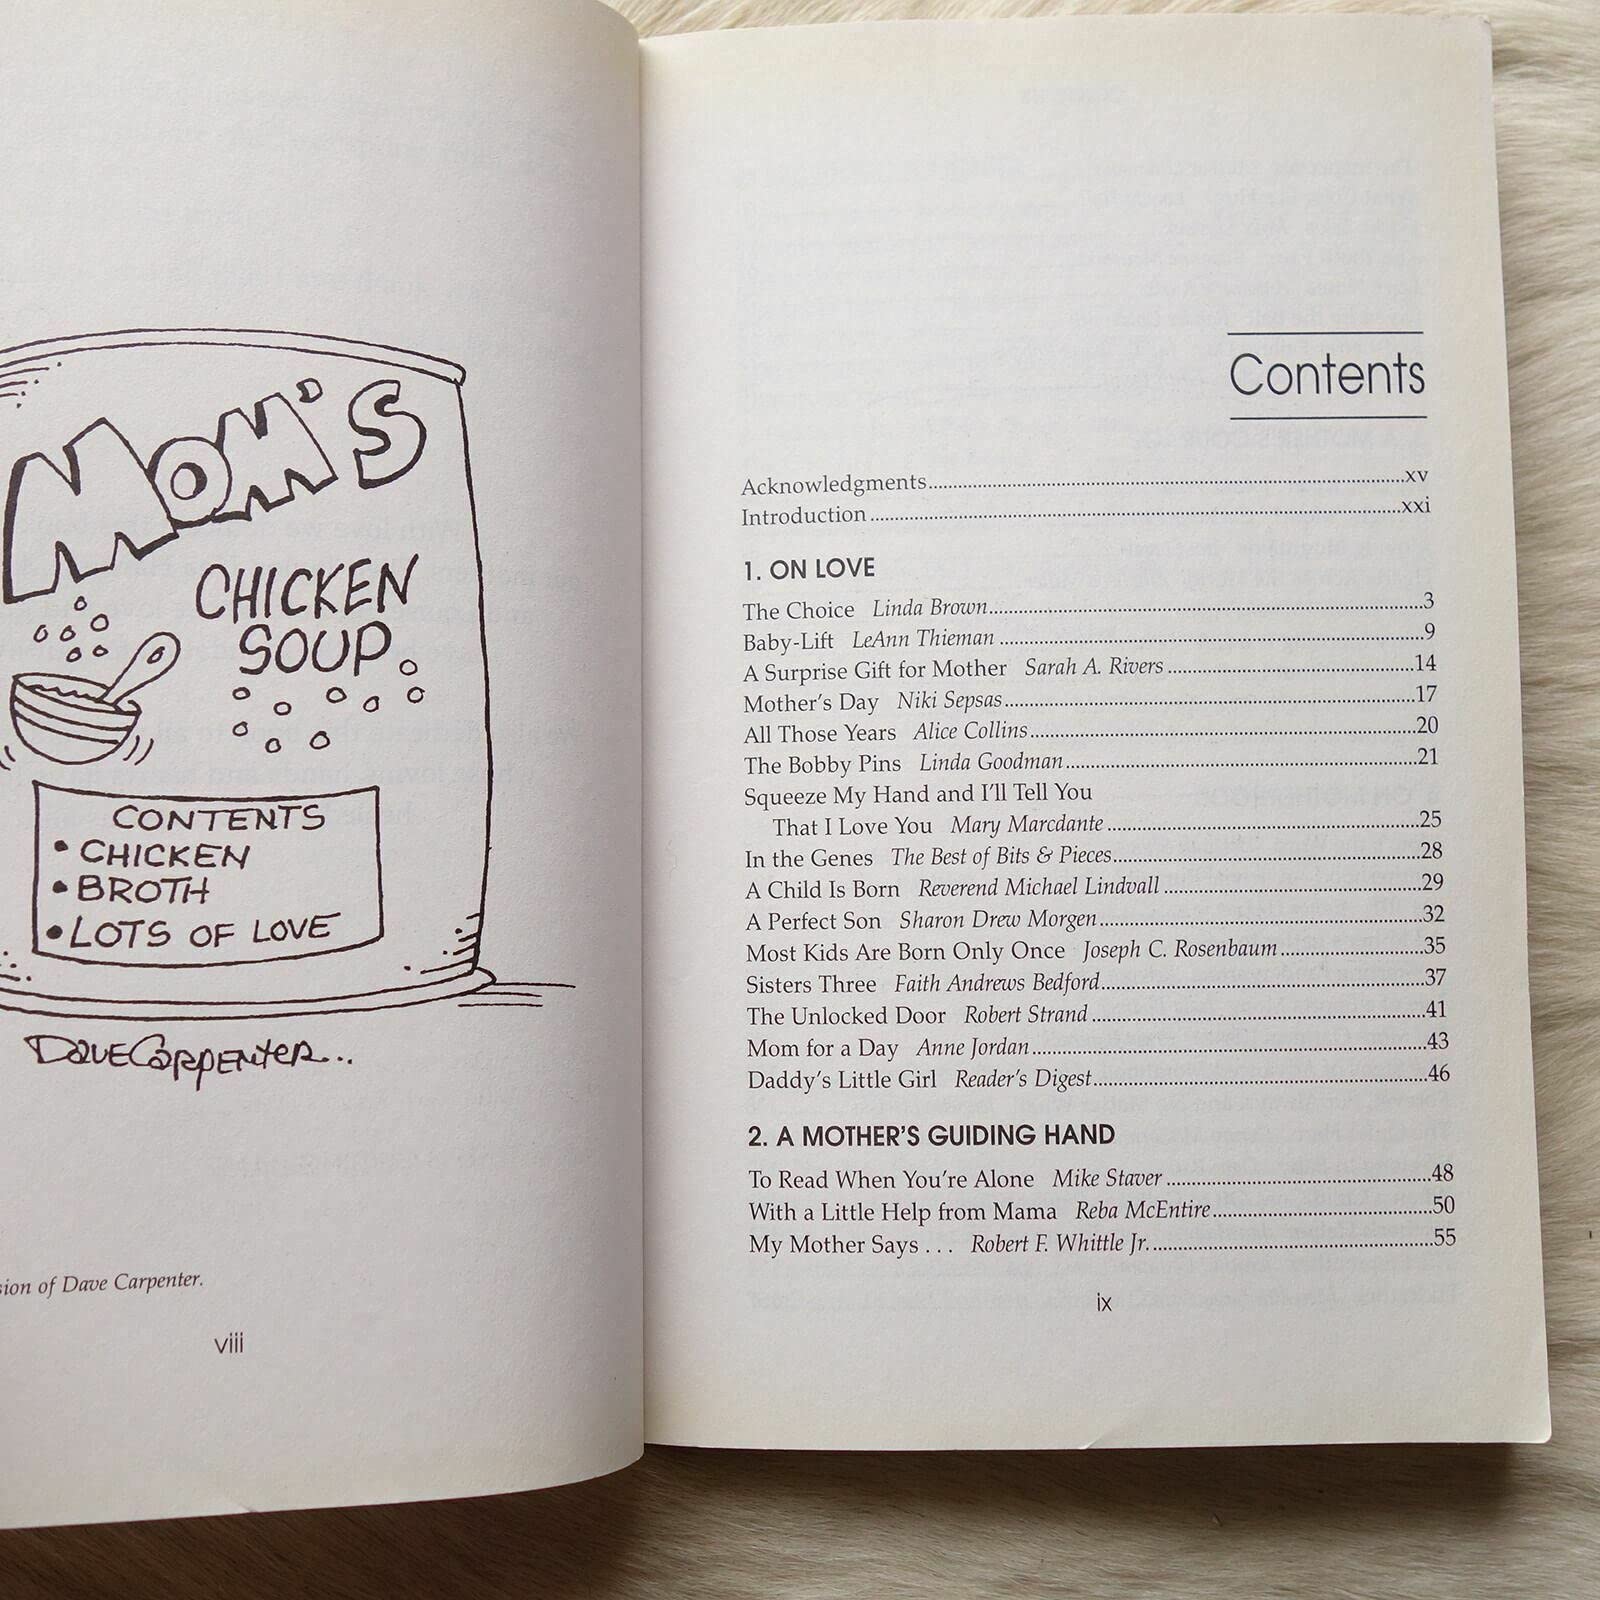 MOM'S
CHICKEN
SOUP
CONTENTS
• CHICKEN
• BROTH
• LOTS OF LOVE
DaveCarpenter...
of Dave Carpenter.
viii
Contents
Acknowledgments....................xv
Introduction....................xxi
1. ON LOVE
The Choice Linda Brown....................3
Baby-Lift LeAnn Thieman....................9
A Surprise Gift for Mother Sarah A. Rivers....................14
Mother's Day Niki Sepsas....................17
All Those Years Alice Collins....................20
The Bobby Pins Linda Goodman....................21
Squeeze My Hand and I'll Tell You
That I Love You Mary Marcdante....................25
In the Genes The Best of Bits & Pieces....................28
A Child Is Born Reverend Michael Lindvall....................29
A Perfect Son Sharon Drew Morgen....................32
Most Kids Are Born Only Once Joseph C. Rosenbaum....................35
Sisters Three Faith Andrews Bedford....................37
The Unlocked Door Robert Strand....................41
Mom for a Day Anne Jordan....................43
Daddy's Little Girl Reader's Digest....................46
2. A MOTHER'S GUIDING HAND
To Read When You're Alone Mike Staver....................48
With a Little Help from Mama Reba McEntire....................50
My Mother Says . . . Robert F. Whittle Jr.....................55
ix